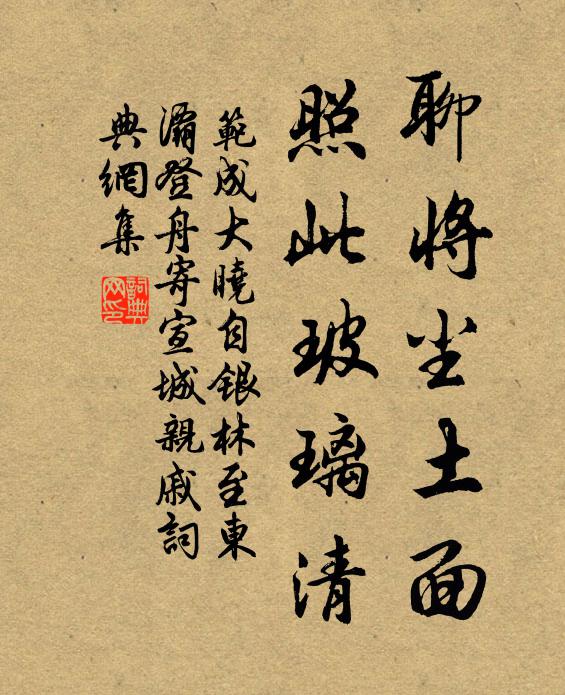 聊将尘土面
照此玻璃清
範成大曉自銀林至東
灞登舟寄宣城親戚詞
典網集
詞典网印